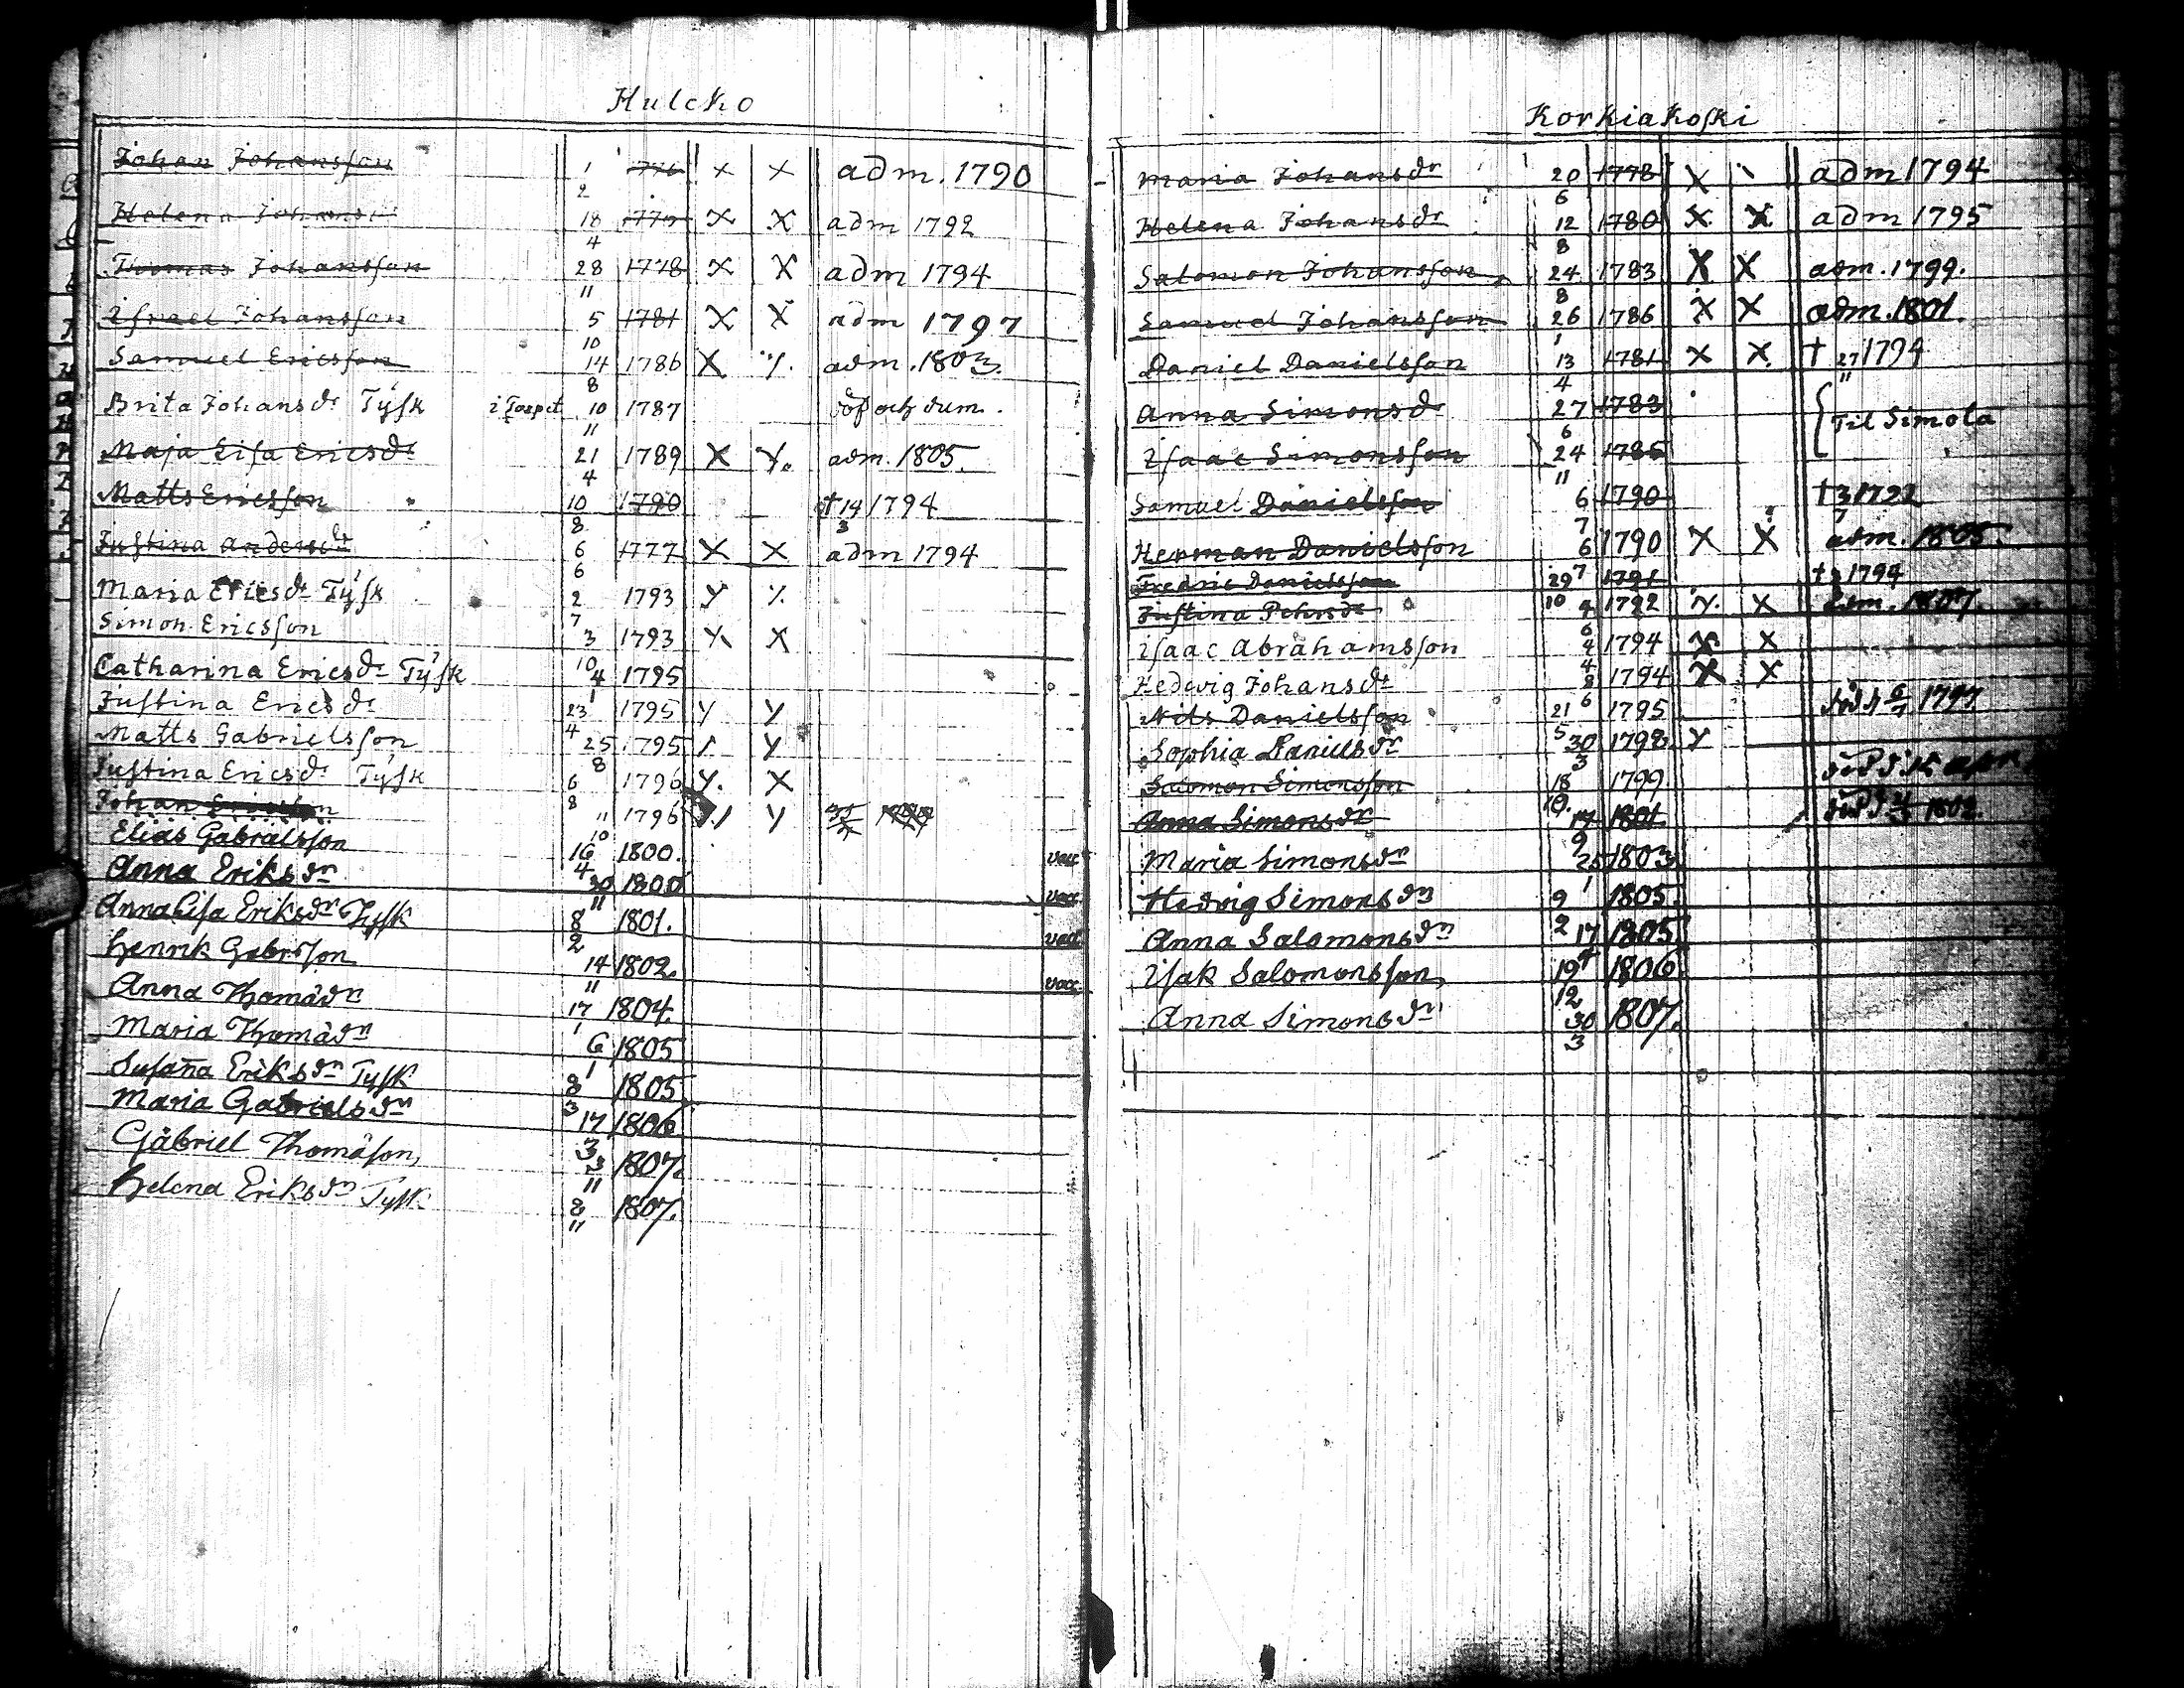 Hulcko
Johan Johansson 1/2 1776 x x adm. 1790
Helena Johansdr 18/4 x x adm 1792
Thomas Johansson 28/11 1778 x x adm 1794
Israel Johansson 5/10 1781 x x adm 1797
Samuel Ericsson 14/8 1786 x adm. 1803.
Brita Johansdr Tysk 10/11 1787 döf och dum.
Maja Lisa Ericsdr 21/4 1789 x adm. 1805.
Matts Ericsson 10/8 1790 † 14/3 1794
Justina Andersdr 6/6 1777 x x adm 1794
Maria Ericsdr Tysk 2/7 1793
Simon Ericsson 3/10 1793 x
Catharina Ericsdr Tysk 4/1 1795
Justina Ericsdr 23/4 1795 y y
Matts Gabrielsson 25/8 1795 y
Justina Ericsdr Tysk 6/8 1796 y. x
Johan Ericsson 11/10 1796 y
Elias Gabrielsson 16/4 1800.
Anna Eriksdr 30/11 1800
Anna Lisa Eriksdr Tysk 8/2 1801.
Henrik Gabrsson 14/11 1802.
Anna Thomädr 17/1 1804.
Maria Thomädr 6/1 1805
Susaña Eriksdr Tysk 8/3 1805
Maria Gabrielsdr 17/3 1806
Gabriel Thomäson, 3/11 1807.
Helena Eriksdr Tysk 8/11 1807.
Korkiakoski
Maria Johansdr 20/6 1778 x adm 1794
Helena Johansdr 12/8 1780 x x adm 1795
Salomon Johansson 24/8 1783 x x adm. 1799.
Samuel Johansson 26/1 1786 x x adm. 1801.
Daniel Danielsson 13/4 1781 x x † 27/11 1794
Anna Simonsdr 27/6 1783 Til Simola
Isaac Simonsson 24/11 1785
Samuel Danielsson 6/7 1790
Herman Danielsson 6/7 1790 x x adm. 1805.
Fredric Danielsson 29/10 1791 1794
Justina Pehrsdr 1792 x adm. 1807.
Isaac Abrahamsson 1794 x x
Hedwig Johansdr 8/6 1794 x x
Nils Danielsson 21/5 1795 1797
Sophia Danielsdr 30/3 1798 y
Salomon Simonsson 18/10 1799
Anna Simonsdr 17/9 1801 1802.
vacc Maria Simonsdr 25/1 1803.
vacc Hedvig Simonsdr 9/2 1805.
vacc Anna Salomonsdr 17/4 1805
vacc Isak Salomonsson, 19/12 1806
Anna Simonsdr 30/3 1807.